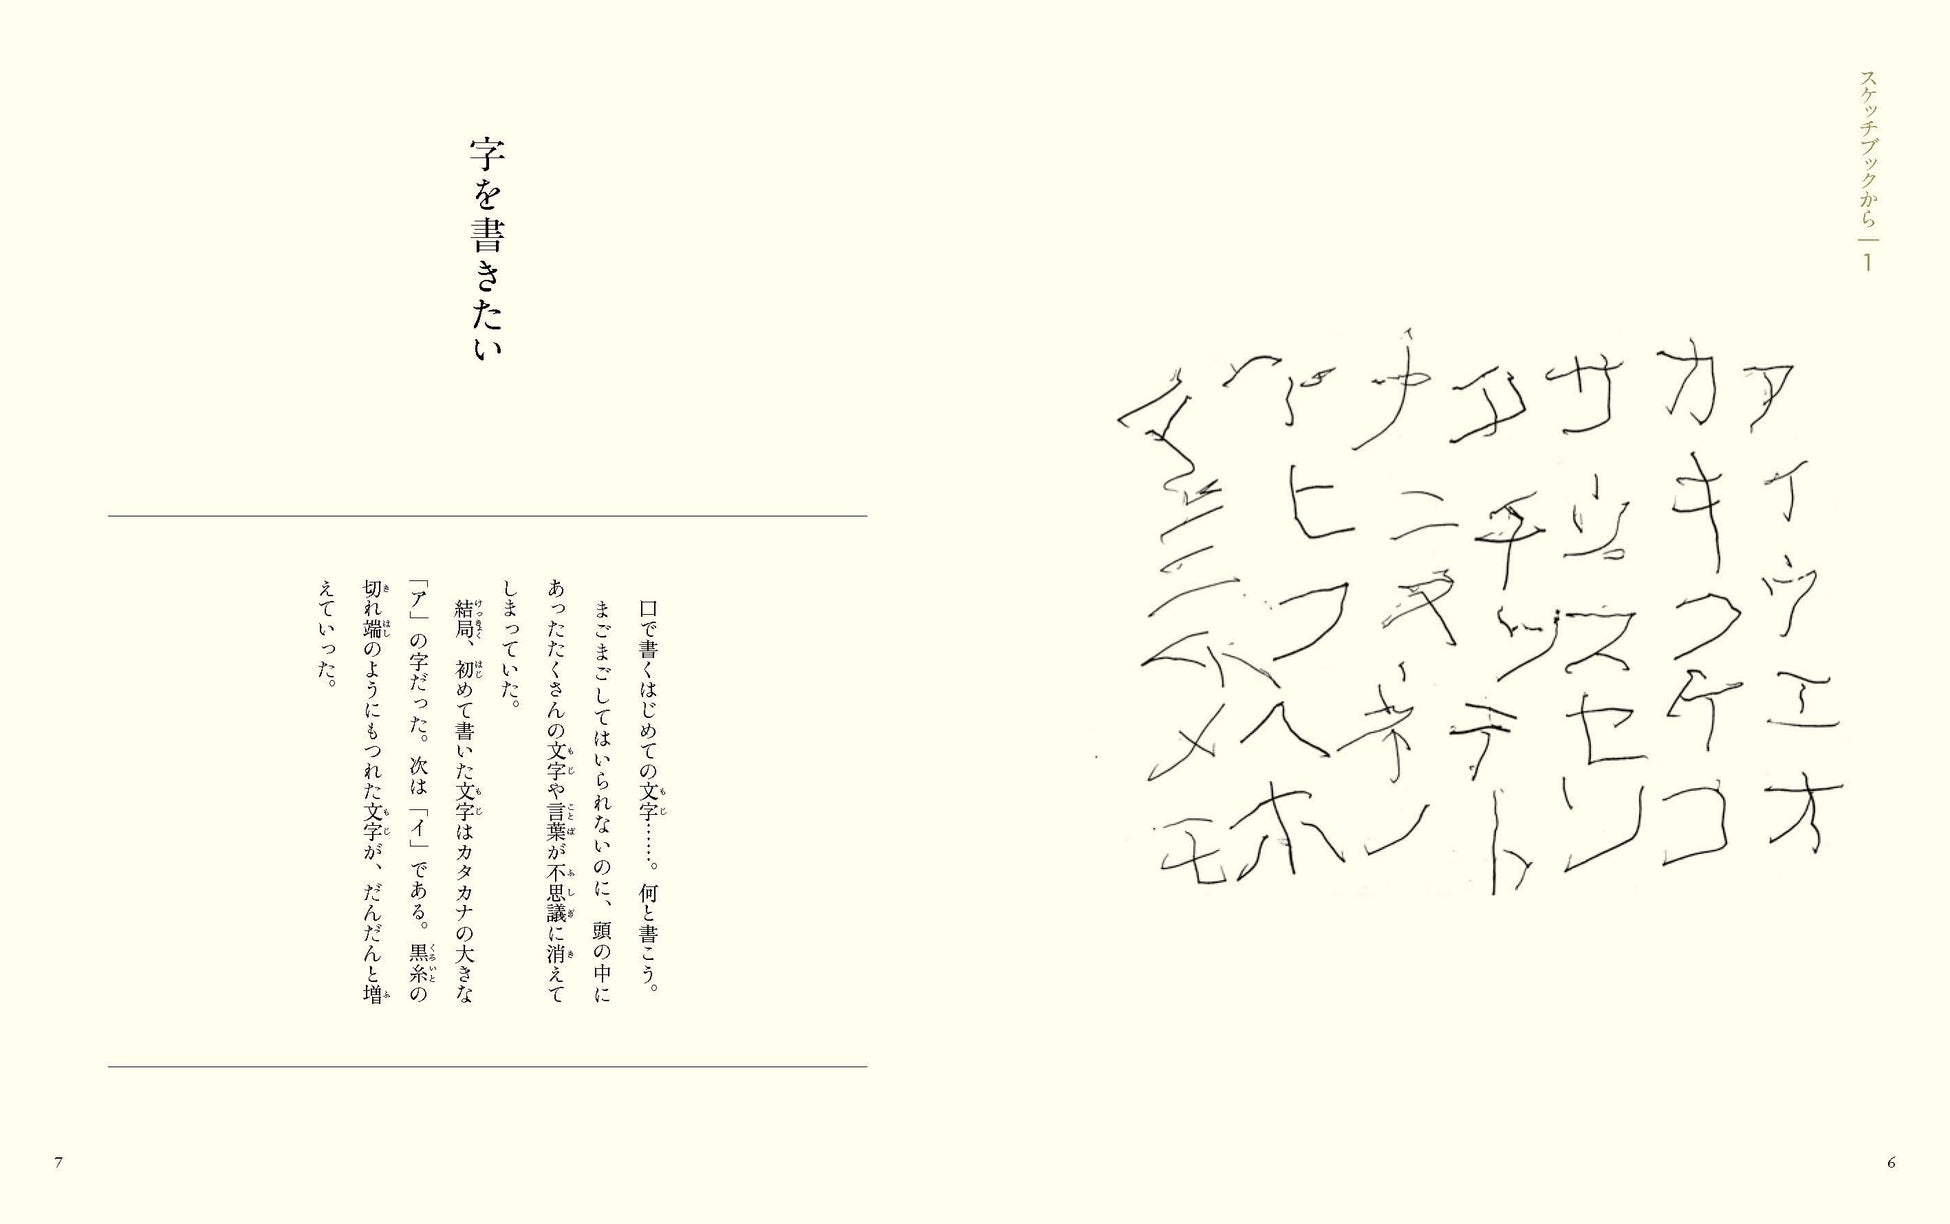 スケッチブックから 1
アイウエオ
カキクケコ
サシスセソ
タチツテト
ナニヌネノ
ハヒフヘホ
マミムメモ
6
字を書きたい
口で書くはじめての文字……。何と書こう。
まごまごしてはいられないのに、頭の中に
あったたくさんの文字や言葉が不思議に消えて
しまっていた。
結局、初めて書いた文字はカタカナの大きな
「ア」の字だった。次は「イ」である。黒糸の
切れ端のようにもつれた文字が、だんだんと増
えていった。
7